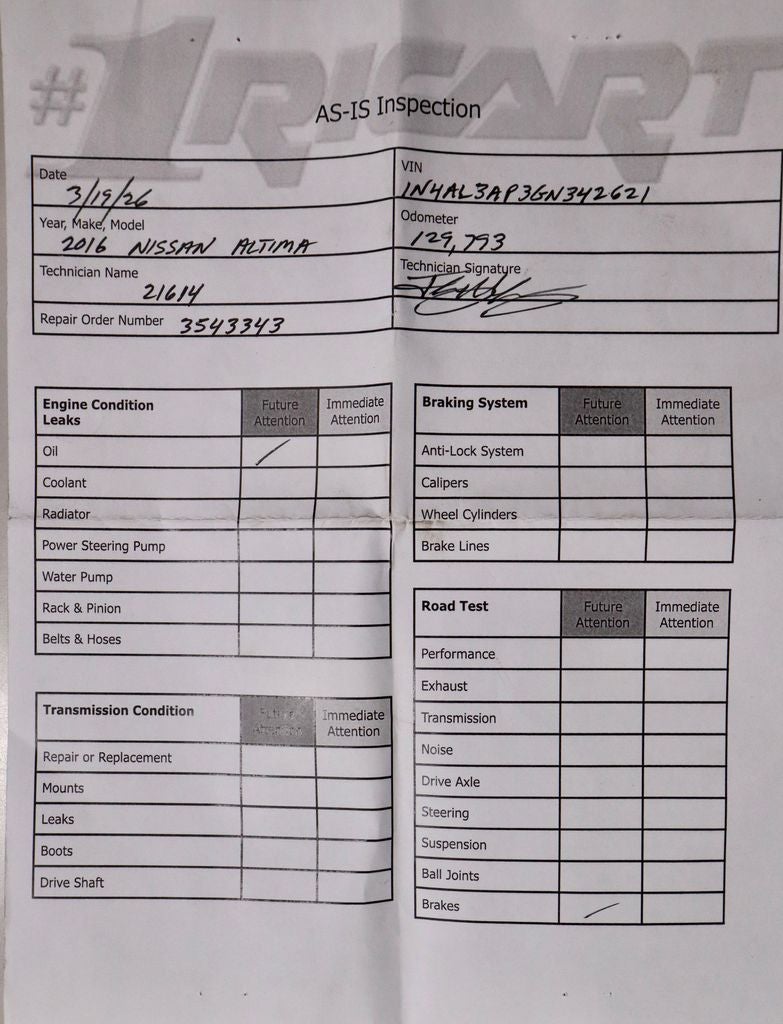 #1 RICART
AS-IS Inspection
Date 3/19/26
VIN 1N4AL3AP3GN342621
Year, Make, Model 2016 NISSAN ALTIMA
Odometer 129,793
Technician Name 21614
Technician Signature
Repair Order Number 3543343
Engine Condition Leaks Future Attention Immediate Attention
Oil /
Coolant
Radiator
Power Steering Pump
Water Pump
Rack & Pinion
Belts & Hoses
Transmission Condition Future Attention Immediate Attention
Repair or Replacement
Mounts
Leaks
Boots
Drive Shaft
Braking System Future Attention Immediate Attention
Anti-Lock System
Calipers
Wheel Cylinders
Brake Lines
Road Test Future Attention Immediate Attention
Performance
Exhaust
Transmission
Noise
Drive Axle
Steering
Suspension
Ball Joints
Brakes /